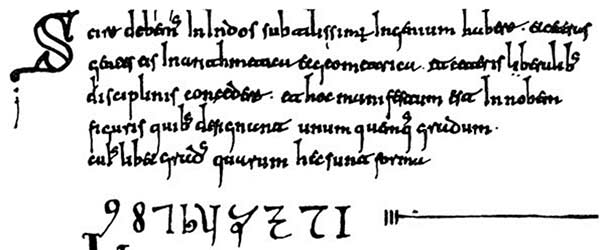 Scire debem' In Indos subtilissimū Ingenium habere. et ceteras
gentes eis In arithmetica et geometrica. et ceteris liberalib'
disciplinis concedere. et hoc manifestum est In nobem
figuris quib' designant unum quemq' gradum.
cui' libet grad' quarum hec sunt forma
9 8 7 6 5 4 3 2 1